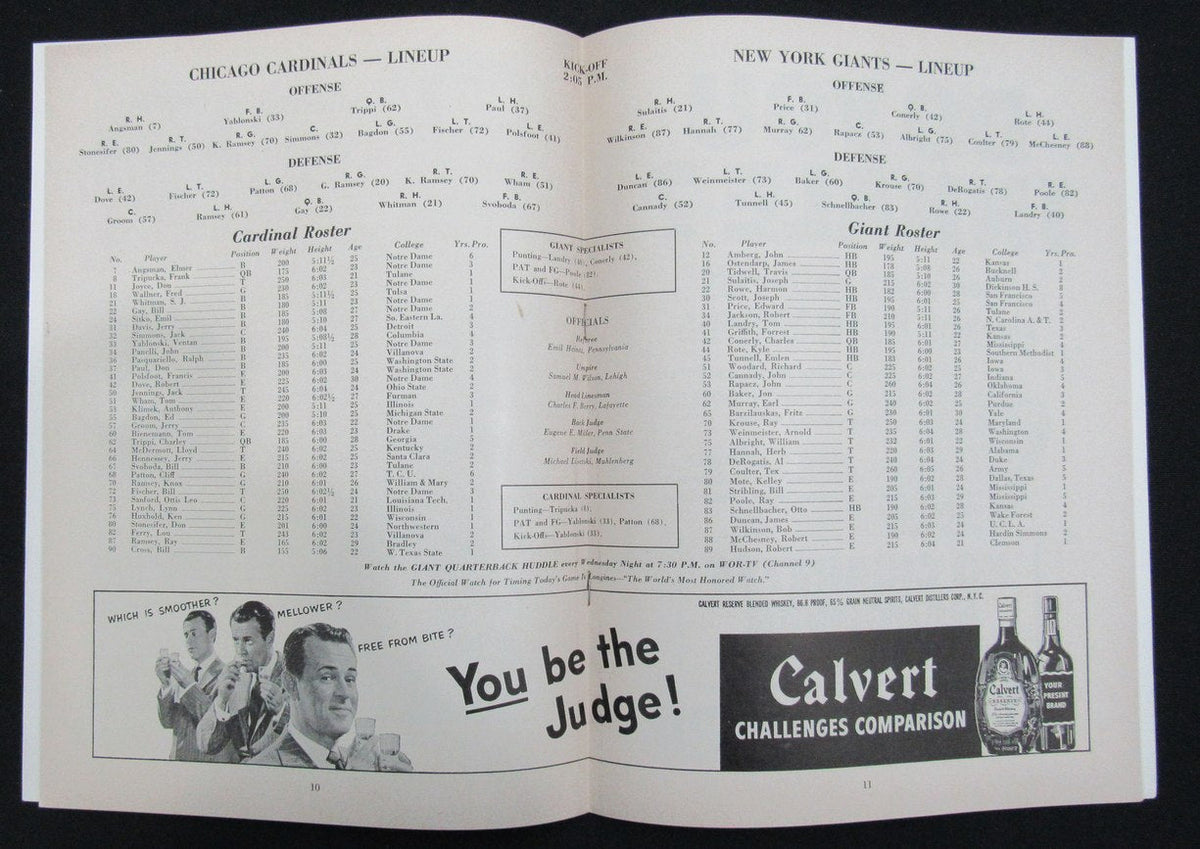 CHICAGO CARDINALS — LINEUP
OFFENSE
R. H. Angsman (7) F. B. Yablonski (33) Q. B. Trippi (62) L. H. Paul (37)
R. E. Stonesifer (80) R. T. Jennings (50) R. G. K. Ramsey (70) C. Simmons (32) L. G. Bagdon (55) L. T. Fischer (72) L. E. Polsfoot (41)
DEFENSE
L. E. Dove (42) L. T. Fischer (72) L. G. Patton (68) R. G. G. Ramsey (20) R. T. K. Ramsey (70) R. E. Wham (51)
C. Groom (57) L. H. Ramsey (61) Q. B. Gay (22) R. H. Whitman (21) F. B. Svoboda (67)
Cardinal Roster
No. Player Position Weight Height Age College Yrs. Pro.
7 Angsman, Elmer B 200 5:11½ 25 Notre Dame 6
8 Tripucka, Frank QB 175 6:02 23 Notre Dame 3
11 Joyce, Don T 250 6:03 21 Tulane 1
18 Wallner, Fred G 230 6:02 23 Notre Dame 1
21 Whitman, S. J. B 185 5:11½ 25 Tulsa 1
22 Gay, Bill B 180 5:11 23 Notre Dame 1
24 Sitko, Emil B 185 5:08 27 Notre Dame 2
31 Davis, Jerry B 180 5:10 27 So. Eastern La. 4
32 Simmons, Jack C 240 6:04 25 Detroit 3
33 Yablonski, Ventan B 195 5:08½ 28 Columbia 4
34 Panelli, John B 200 5:11 25 Notre Dame 3
36 Pasquariello, Ralph B 235 6:02 24 Villanova 2
37 Paul, Don B 185 6:00 25 Washington State 2
41 Polsfoot, Francis E 200 6:03 24 Washington State 2
42 Dove, Robert E 225 6:02 30 Notre Dame 4
50 Jennings, Jack T 245 6:04 24 Ohio State 2
51 Wham, Tom E 220 6:02½ 27 Furman 3
53 Klimek, Anthony E 200 5:11 25 Illinois 1
55 Bagdon, Ed G 200 5:10 25 Michigan State 2
57 Groom, Jerry C 235 6:03 22 Notre Dame 1
60 Bienemann, Tom E 220 6:03 23 Drake 1
62 Trippi, Charley QB 185 6:00 28 Georgia 5
64 McDermott, Lloyd T 240 6:02 25 Kentucky 2
66 Hennessey, Jerry E 215 6:02 25 Santa Clara 2
67 Svoboda, Bill B 210 6:00 23 Tulane 2
68 Patton, Cliff G 240 6:02 27 T. C. U. 6
70 Ramsey, Knox G 210 6:01 26 William & Mary 2
72 Fischer, Bill T 250 6:02½ 24 Notre Dame 3
73 Sanford, Ottis Leo C 220 6:01 21 Louisiana Tech. 1
75 Lynch, Lynn G 225 6:02 23 Illinois 1
76 Huxhold, Ken G 215 6:01 22 Wisconsin 1
80 Stonesifer, Don E 201 6:00 24 Northwestern 1
82 Ferry, Lou T 245 6:02 23 Villanova 2
87 Ramsey, Ray E 165 6:02 29 Bradley 2
90 Cross, Bill B 155 5:06 22 W. Texas State 1
KICK-OFF
2:05 P.M.
GIANT SPECIALISTS
Punting—Landry (40), Conerly (42),
PAT and FG—Poole (82).
Kick-Offs—Rote (44).
OFFICIALS
Referee
Emil Heintz, Pennsylvania
Umpire
Samuel M. Wilson, Lehigh
Head Linesman
Charles F. Berry, Lafayette
Back Judge
Eugene E. Miller, Penn State
Field Judge
Michael Lisetski, Muhlenberg
CARDINAL SPECIALISTS
Punting—Tripucka (8).
PAT and FG—Yablonski (33), Patton (68).
Kick-Offs—Yablonski (33).
NEW YORK GIANTS — LINEUP
OFFENSE
R. H. Sulaitis (21) F. B. Price (31) Q. B. Conerly (42) L. H. Rote (44)
R. E. Wilkinson (87) R. T. Hannah (77) R. G. Murray 62) C. Rapacz (53) L. G. Albright (75) L. T. Coulter (79) L. E. McChesney (88)
DEFENSE
L. E. Duncan (86) L. T. Weinmeister (73) L. G. Baker (60) R. G. Krouse (70) R. T. DeRogatis (78) R. E. Poole (82)
C. Cannady (52) L. H. Tunnell (45) Q. B. Schnellbacher (83) R. H. Rowe (22) F. B. Landry (40)
Giant Roster
No. Player Position Weight Height Age College Yrs. Pro.
12 Amberg, John HB 195 5:11 22 Kansas 1
16 Ostendarp, James HB 178 5:08 26 Bucknell 2
20 Tidwell, Travis QB 185 5:10 26 Auburn 2
21 Sulaitis, Joseph G 215 6:02 30 Dickinson H. S. 8
22 Rowe, Harmon HB 182 6:00 28 San Francisco 5
30 Scott, Joseph HB 195 6:01 25 San Francisco 4
31 Price, Edward FB 190 5:11 26 Tulane 2
34 Jackson, Robert FB 210 5:11 26 N. Carolina A. & T. 2
40 Landry, Tom HB 195 6:01 26 Texas 3
41 Griffith, Forrest HB 190 5:11 22 Kansas 2
42 Conerly, Charles QB 185 6:01 27 Mississippi 4
44 Rote, Kyle HB 195 6:00 23 Southern Methodist 1
45 Tunnell, Emlen HB 183 6:01 26 Iowa 4
51 Woodard, Richard C 225 6:02 25 Iowa 3
52 Cannady, John C 225 6:02 27 Indiana 5
53 Rapacz, John C 260 6:04 26 Oklahoma 4
60 Baker, Jon G 215 6:02 28 California 3
62 Murray, Earl G 240 6:02 25 Purdue 2
65 Barzilauskas, Fritz G 230 6:01 30 Yale 4
70 Krouse, Ray T 250 6:03 24 Maryland 1
73 Weinmeister, Arnold T 235 6:04 28 Washington 4
75 Albright, William T 232 6:01 22 Wisconsin 1
77 Hannah, Herb T 220 6:03 29 Alabama 1
78 DeRogatis, Al T 240 6:04 24 Duke 3
79 Coulter, Tex T 260 6:05 26 Army 5
80 Mote, Kelley E 190 6:02 28 Duke
81 Stribling, Bill E 205 6:01 24 Mississippi 1
82 Poole, Ray E 215 6:03 29 Mississippi 5
83 Schnellbacher, Otto HB 190 6:02 28 Kansas 4
86 Duncan, James E 205 6:02 25 Wake Forest 2
87 Wilkinson, Bob E 215 6:03 24 U. C. L. A. 1
88 McChesney, Robert E 190 6:02 24 Hardin Simmons 2
89 Hudson, Robert E 215 6:04 21 Clemson 1
Watch the GIANT QUARTERBACK HUDDLE every Wednesday Night at 7:30 P.M. on WOR-TV (Channel 9)
The Official Watch for Timing Today's Game Is Longines—"The World's Most Honored Watch."
WHICH IS SMOOTHER?
MELLOWER?
FREE FROM BITE?
You be the
Judge!
CALVERT RESERVE BLENDED WHISKEY, 86.8 PROOF, 65% GRAIN NEUTRAL SPIRITS, CALVERT DISTILLERS CORP., N.Y.C.
Calvert
CHALLENGES COMPARISON
Calvert
RESERVE
YOUR
PRESENT
BRAND
10
11